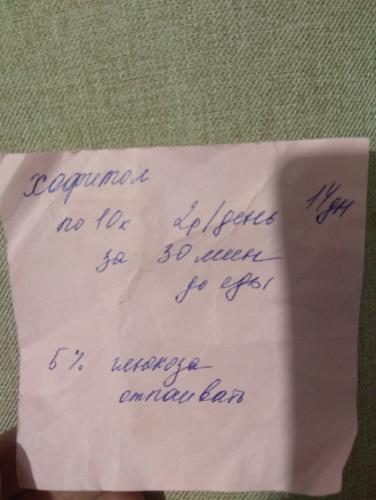 Хофитол
по 10к 2р/день 14дн
за 30 мин
до еды
5% глюкоза
отпаивать